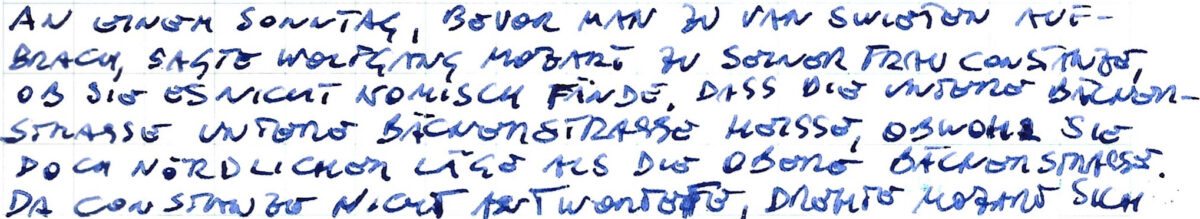 AN EINEM SONNTAG, BEVOR MAN ZU VAN SWIETEN AUF-
BRACH, SAGTE WOLFGANG MOZART ZU SEINER FRAU CONSTANZE,
OB SIE ES NICHT KOMISCH FÄNDE, DASS DIE UNTERE BÄCKER-
STRASSE UNTERE BÄCKERSTRASSE HEISSE, OBWOHL SIE
DOCH NÖRDLICHER LÄGE ALS DIE OBERE BÄCKERSTRASSE.
DA CONSTANZE NICHT ANTWORTETE, DREHTE MOZART SICH